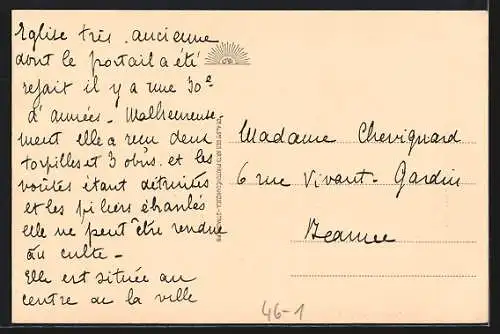 Eglise très ancienne
dont le portail a été
refait il y a une 30e
d'années - Malheureuse
ment elle a reçu deux
torpilles et 3 obus et les
voûtes étant détruites
et les piliers ébranlés
elle ne peut être rendue
au culte -
Elle est située au
centre de la ville
Madame Chevignard
6 rue Vivant-Gardin
Beaune
46-1